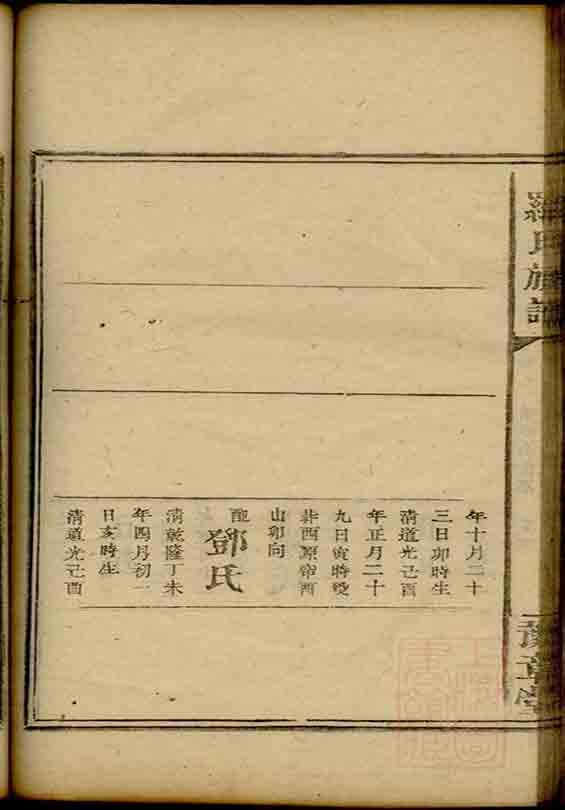 羅氏族譜
豫章堂
年十月二十
三日卯時生
清道光己酉
年正月二十
九日寅時歿
葬西源帘酉
山卯向
配
鄧氏
清乾隆丁未
年四月初一
日亥時生
清道光己酉